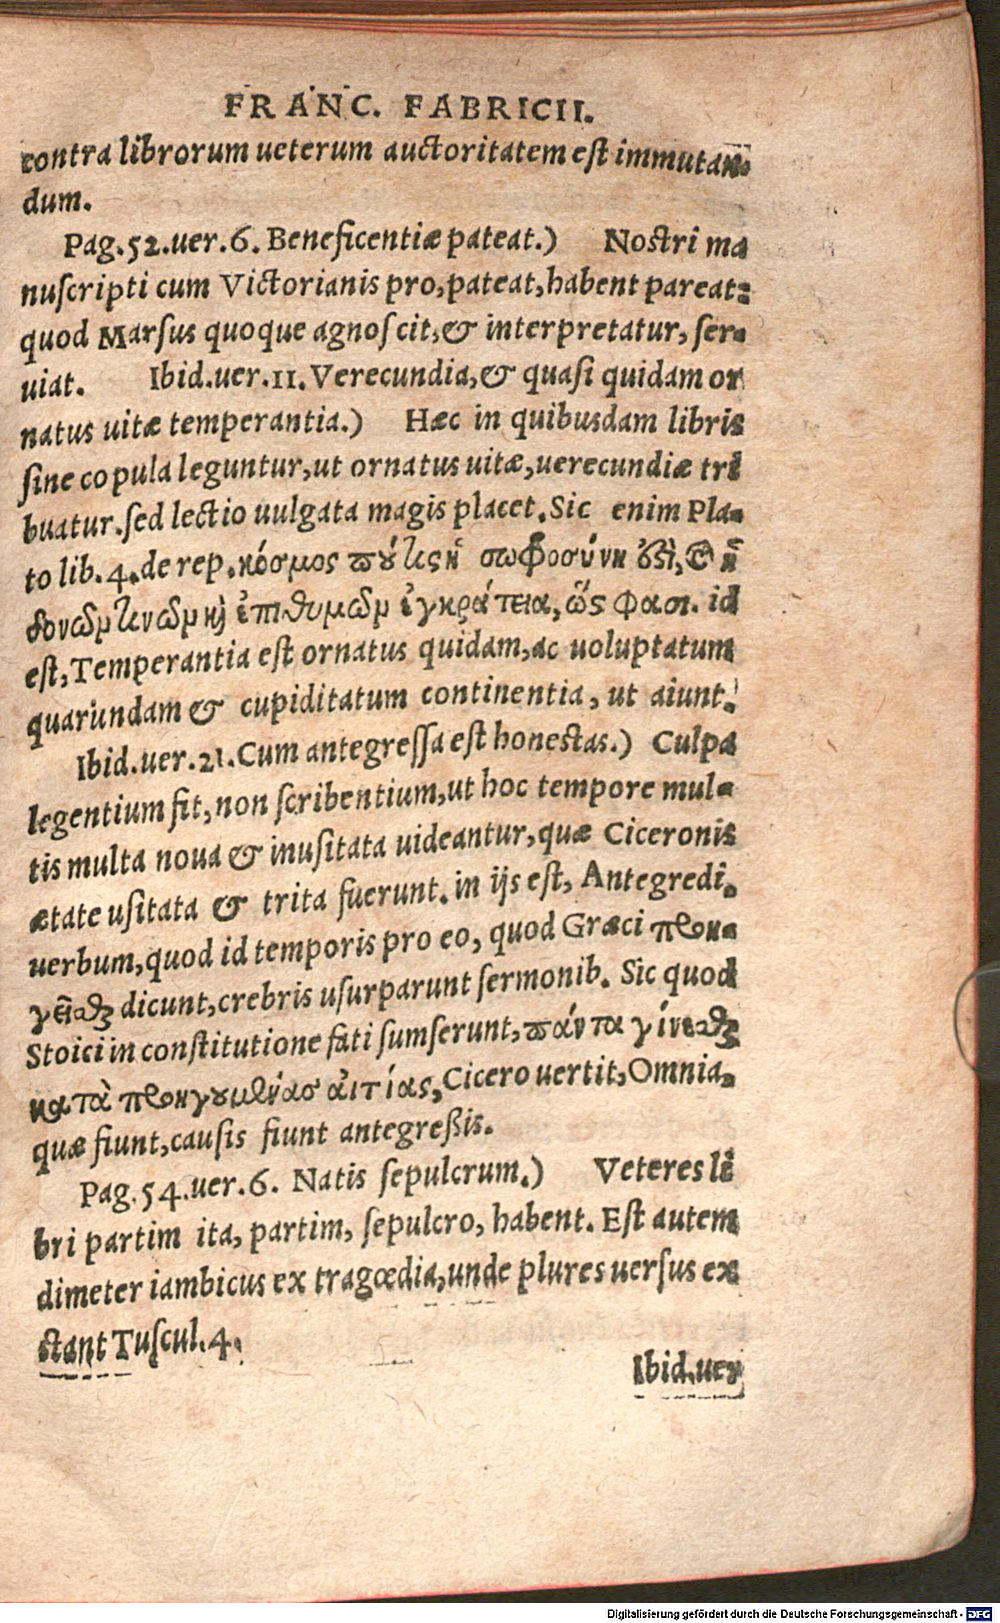 FRANC. FABRICII.
contra librorum ueterum auctoritatem est immutan-
dum.
Pag.52.uer.6. Beneficentiæ pateat.) Nostri ma
nuscripti cum Victorianis pro, pateat, habent pareat:
quod Marsus quoque agnoscit, & interpretatur, ser-
uiat. Ibid.uer.11. Verecundia, & quasi quidam or
natus uitæ temperantia.) Hæc in quibusdam libris
sine copula leguntur, ut ornatus uitæ, uerecundiæ tri
buatur. sed lectio uulgata magis placet. Sic enim Pla-
to lib. 4. de rep. κόσμος πού τις ἡ σωφροσύνη ὅτι, καὶ ἡ
δονῶν τινῶν καὶ ἐπιθυμιῶν ἐγκράτεια, ὥς φασι. id
est, Temperantia est ornatus quidam, ac uoluptatum
quarundam & cupiditatum continentia, ut aiunt.
Ibid.uer.21. Cum antegressa est honestas.) Culpa
legentium fit, non scribentium, ut hoc tempore mul-
tis multa noua & inusitata uideantur, quæ Ciceronis
ætate usitata & trita fuerunt. in ijs est, Antegredi,
uerbum, quod id temporis pro eo, quod Græci προη-
γεῖσθαι dicunt, crebris usurparunt sermonib. Sic quod
Stoici in constitutione fati sumserunt, πάντα γίνεσθαι
κατὰ προηγουμένας αἰτίας, Cicero uertit, Omnia,
quæ fiunt, causis fiunt antegreßis.
Pag.54.uer.6. Natis sepulcrum.) Veteres li
bri partim ita, partim, sepulcro, habent. Est autem
dimeter iambicus ex tragœdia, unde plures uersus ex
stant Tuscul. 4.
Ibid.uer
Digitalisierung gefördert durch die Deutsche Forschungsgemeinschaft - DFG